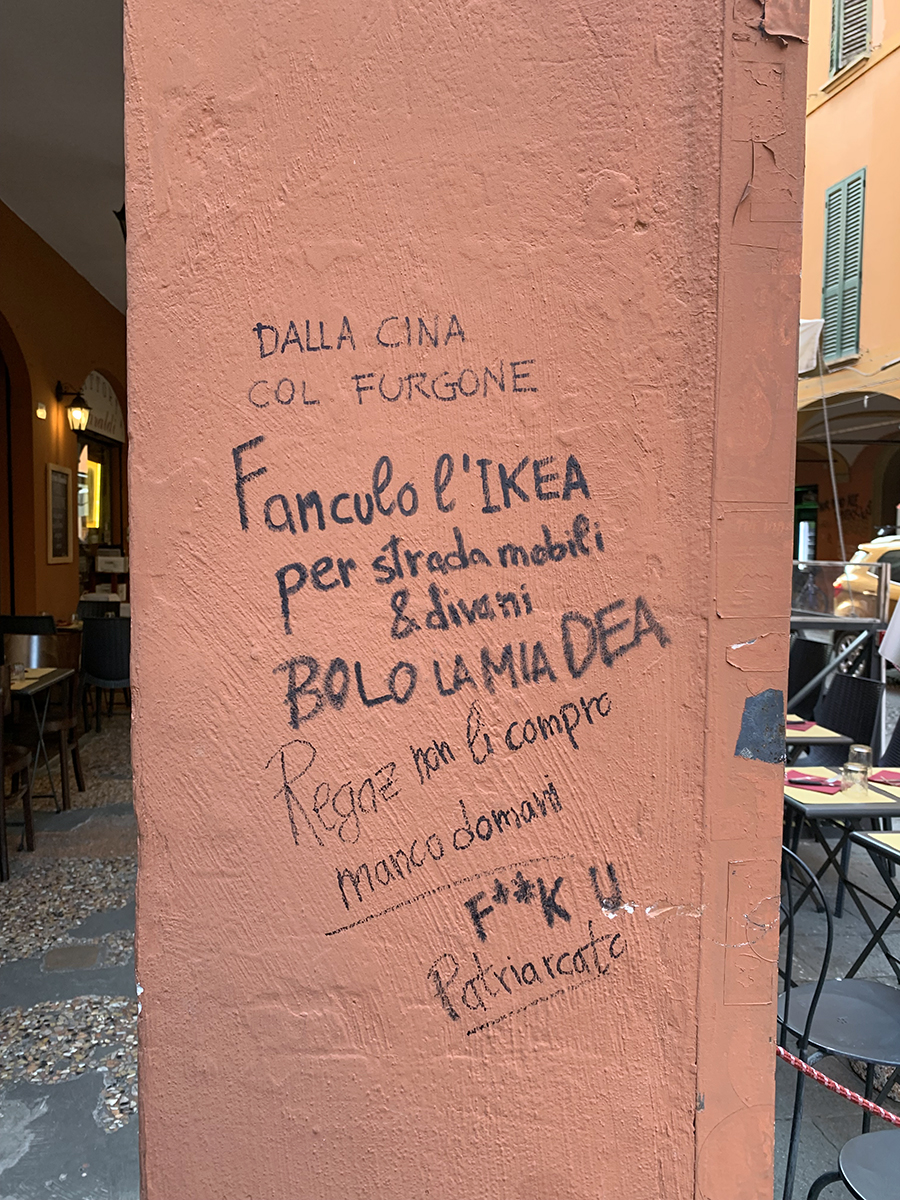 DALLA CINA
COL FURGONE
Fanculo l'IKEA
per strada mobili
& divani
BOLO LA MIA DEA
Regaz non li compro
manco domani
F**K U
Patriarcato